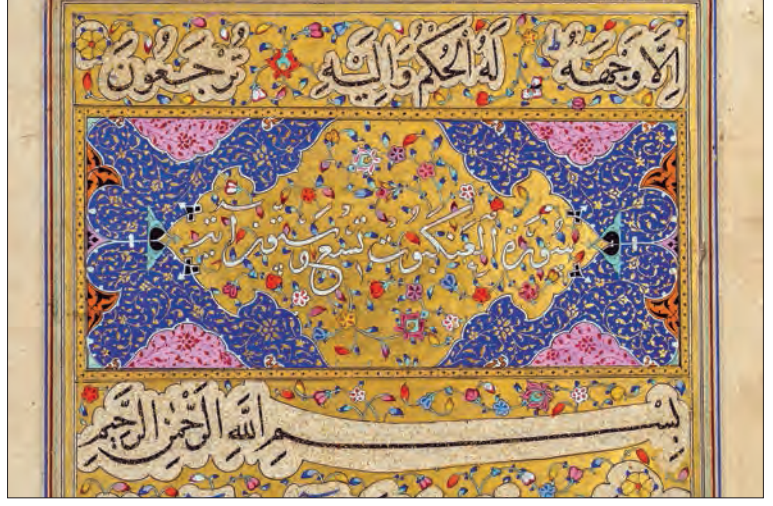 اِلَّا وَجْهَهُ لَهُ الْحُكْمُ وَاِلَيْهِ تُرْجَعُونَ
سُورَةُ الْعَنْكَبُوت تِسْع وَ سِتُّونَ آيَة
بِسْمِ اللَّهِ الرَّحْمٰنِ الرَّحِيمِ